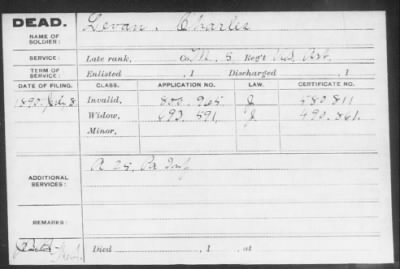 DEAD.
NAME OF SOLDIER: Levan, Charles
SERVICE: Late rank, Co. M. 5 Reg't U.S. Art.
TERM OF SERVICE: Enlisted , 1 Discharged , 1
DATE OF FILING. CLASS. APPLICATION NO. LAW. CERTIFICATE NO.
1890, July 8 Invalid, 800.965 J 580.811
Widow, 493.891 J 490.861
Minor,
ADDITIONAL SERVICES: 25, Pa Inf
REMARKS:
Died , 1 , at